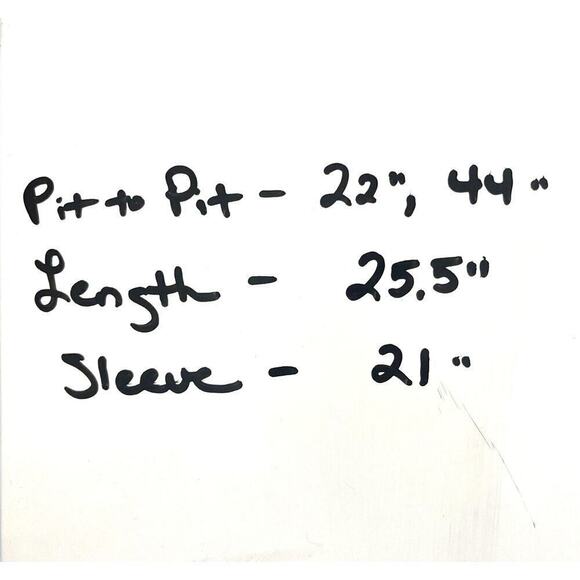 Pit to Pit - 22", 44"
Length - 25.5"
Sleeve - 21"